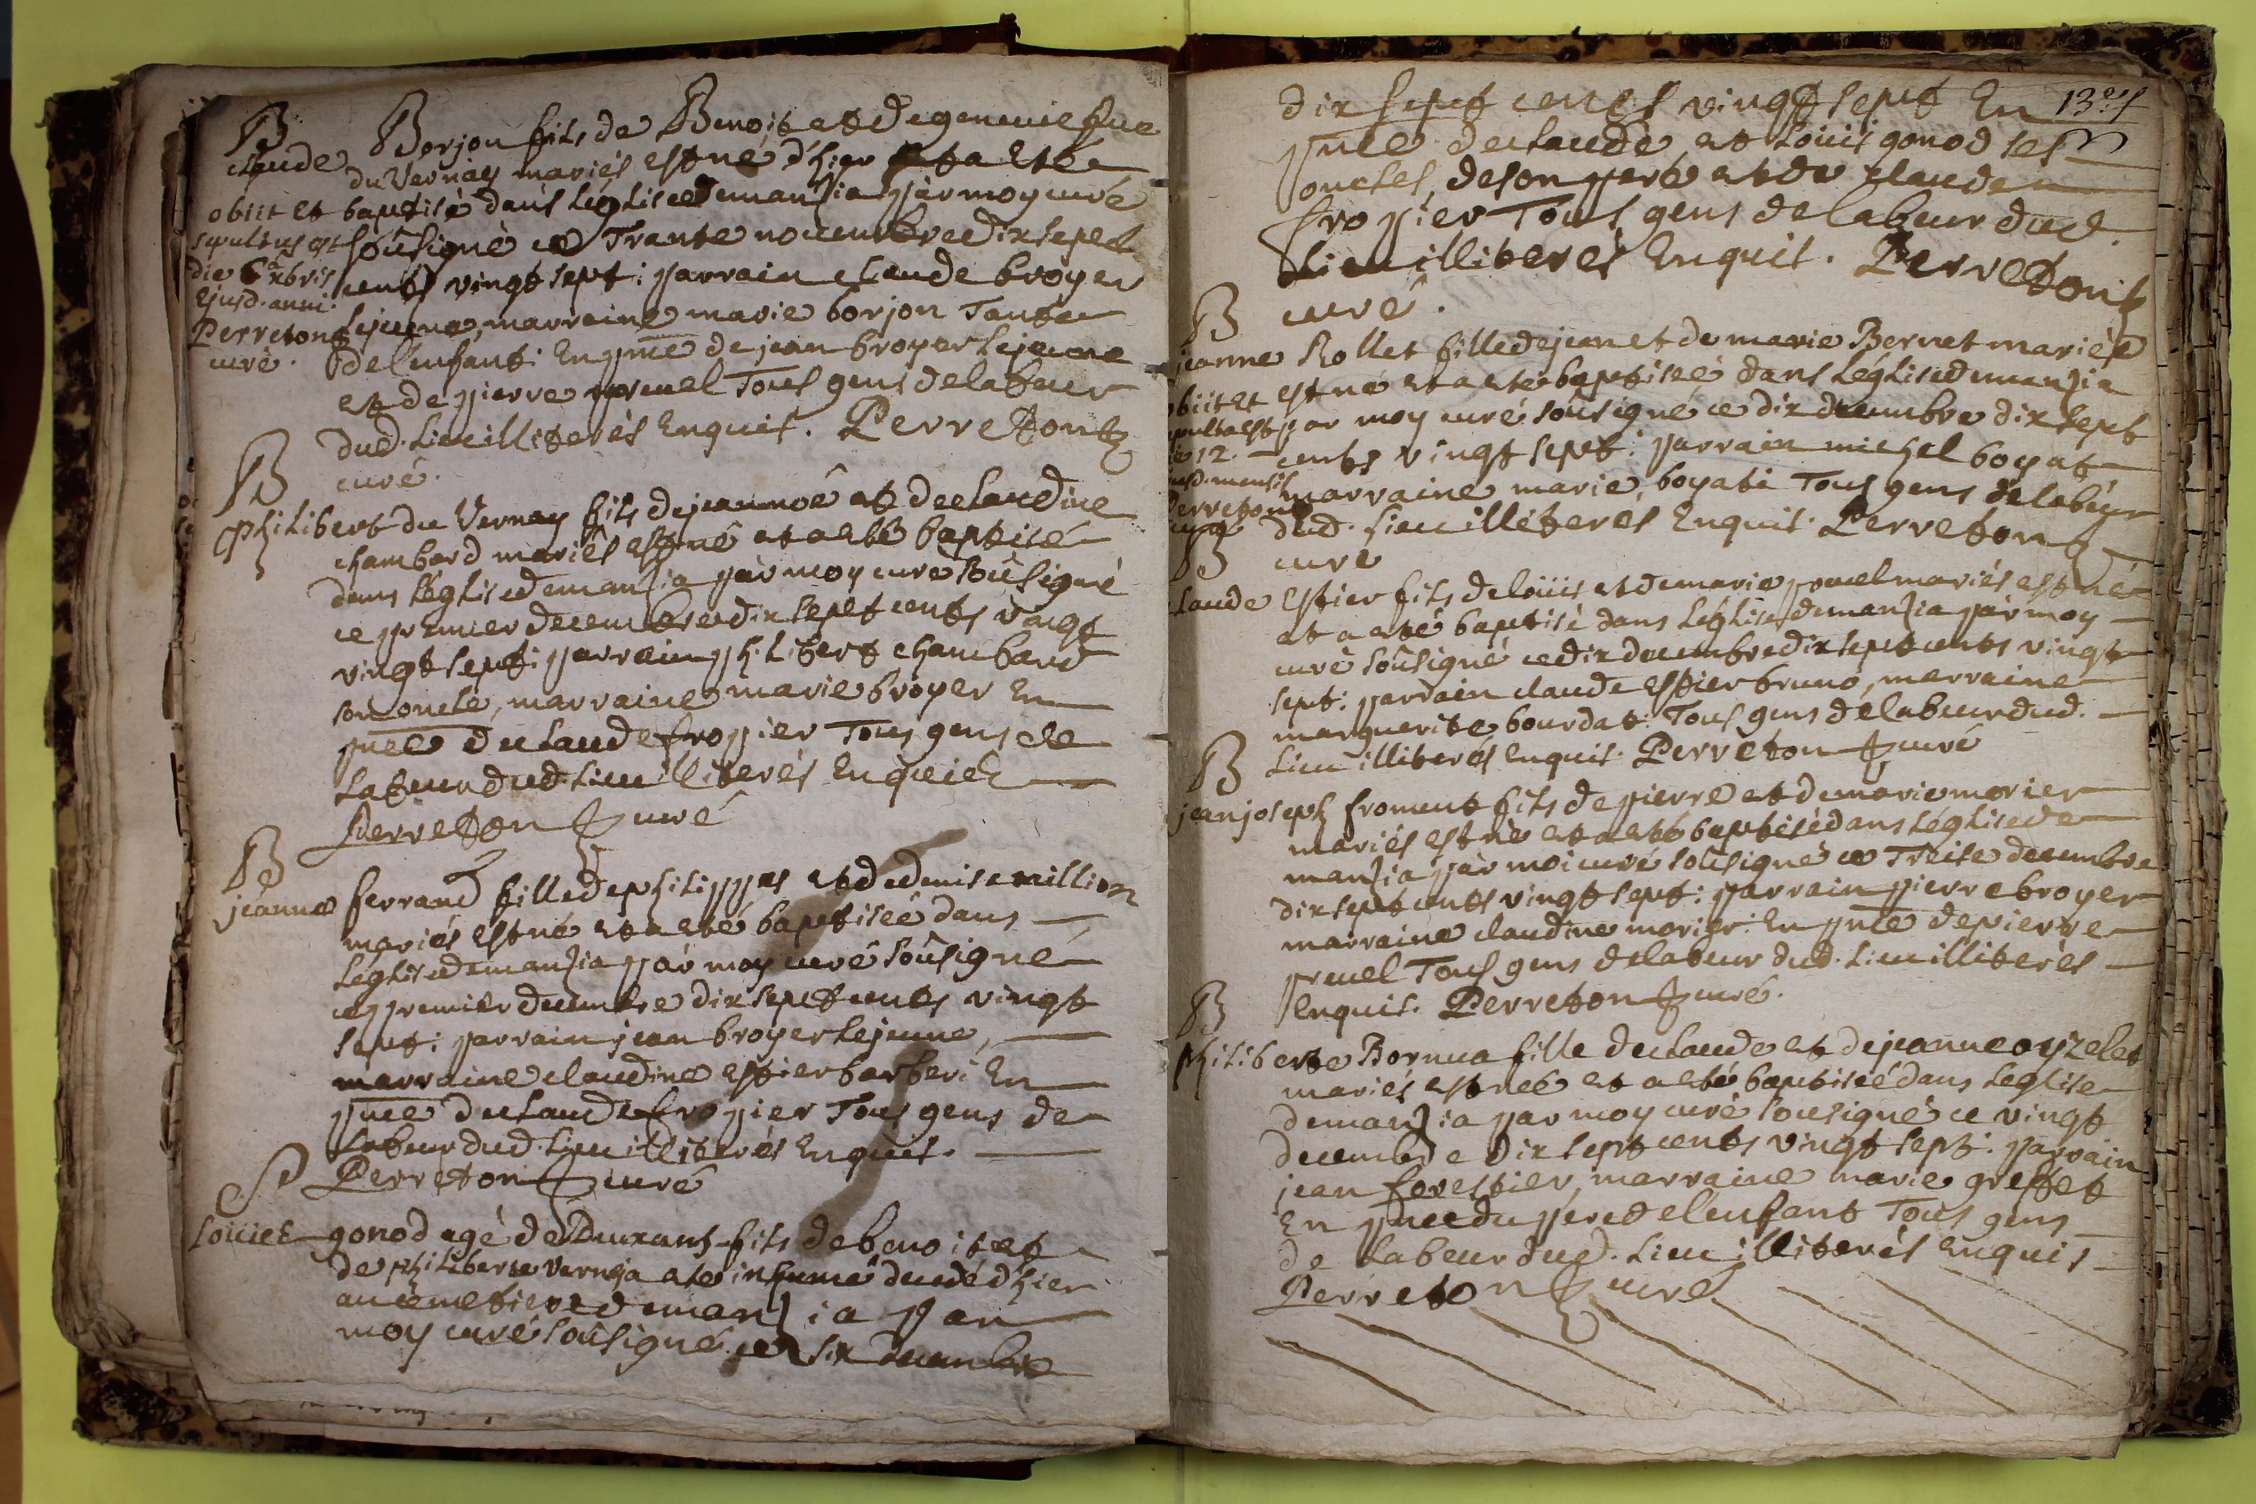 B
claude Borjon fils de Benoit et de genevieve
du Vernay mariés est né d'hier et a esté
baptisé dans l'église de manzia par moy curé
soûsigné ce Trante novembre dix sept
cents vingt sept: parrain claude broyer
lejeune, marraine marie borjon Tante
de l'enfant: En pnce de jean broyer lejeune
et de pierre pruvel Tous gens de labeur
dud. Lieu illiterés Enquis. Perretont
curé.
obiit et
sepultus est
die 6 xbris
ejusd. anni
Perretont
curé.
B
philibert du Vernay fils de jean noê et de claudine
chambard mariés est né et a esté baptisé
dans l'église de manzia par moy curé soûsigné
ce premier decembre dix sept cents vingt
vingt sept: parrain philibert chambard
son oncle, marraine marie broyer En
pnce de claude fropier Tous gens de
labeur dud. Lieu illiterés Enquis
Perreton curé
B
jeanne ferrand fille de philippes et de denise million
mariés est né et a esté baptiseé dans
l'église de manzia par moy curé soûsigné
ce premier decembre dix sept cents vingt
sept: parrain jean broyer lejeune,
marraine claudine estier barberi En
pnce de claude fropier Tous gens de
labeur dud. Lieu illiterés Enquis.
Perreton curé
S
Loüis gonod agé de deux ans fils de benoit et
de philiberte vernja a été inhumé decedé d'hier
au cemetiere de manzia par
moy curé soûsigné ce six decembre
dix sept cents vingt sept En 13es
pnce de claude et Loüis gonod ses
oncles, de son pere et de claude
fropier Tous gens de labeur dud.
Lieu illiterés Enquis. Perretont
curé.
B
jeanne Rollet fille de jean et de marie Bernet mariés
est né et a esté baptiseé dans l'église de manzia
par moy curé soûsigné ce dix decembre dix sept
cents vingt sept: parrain michel boyat
marraine marie boyat: Tous gens de labeur
dud. Lieu illiterés Enquis. Perreton
curé
obiit et
sepulta est
die 12.
ejusd. mensis
Perreton
curé
B
Claude estier fils de loüis et de marie pruvel mariés est né
et a esté baptisé dans l'église de manzia par moy
curé soûsigné ce dix decembre dix sept cents vingt
sept: parrain claude estier bruno, marraine
marguerite bourdat: Tous gens de labeur dud.
Lieu illiterés Enquis. Perreton curé
B
jean joseph froment fils de pierre et de marie morier
mariés est né et a esté baptisé dans l'église de
manzia par moi curé soûsigné ce Treise decembre
dix sept cents vingt sept: parrain pierre broyer
marraine claudine morier: En pnce de pierre
pruvel Tous gens de labeur dud. Lieu illiterés
Enquis. Perreton curé.
B
philiberte Bornua fille de claude et de jeanne oyzelet
mariés est neé et a esté baptiseé dans l'église
de manzia par moy curé soûsigné ce vingt
decembre dix sept cents vingt sept: parrain
jean forestier, marraine marie greffet
En pnce du pere de l'enfant Tous gens
de labeur dud. Lieu illiterés Enquis
Perreton curé